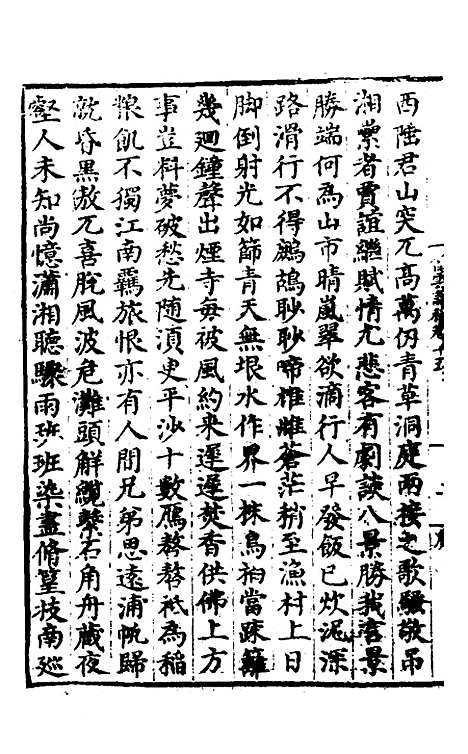 西陲君山突兀高萬仞青草洞庭兩接之歌騷敬吊
湘纍者賈誼繼賦情尤悲客有劇談八景勝我言景
勝端何為山市晴嵐翠欲滴行人早發飯已炊泥深
路滑行不得鷓鴣聒聒啼椎雌蒼茫稍至漁村上日
脚倒射光如篩青天無垠水作界一抹鳥桕當疎籬
幾廻鐘聲出煙寺每被風約来遲遲焚香供佛上方
事豈料夢破愁先随湏臾平沙十數鴈嗸嗸衹為稲
粮飢不獨江南羈旅恨亦有人間兄弟思遠浦帆歸
就昏黒敖兀喜脫風波危灘頭解纜繫石角舟蔵夜
壑人未知尚憶瀟湘聴驟雨班班染盡脩篁枝南巡